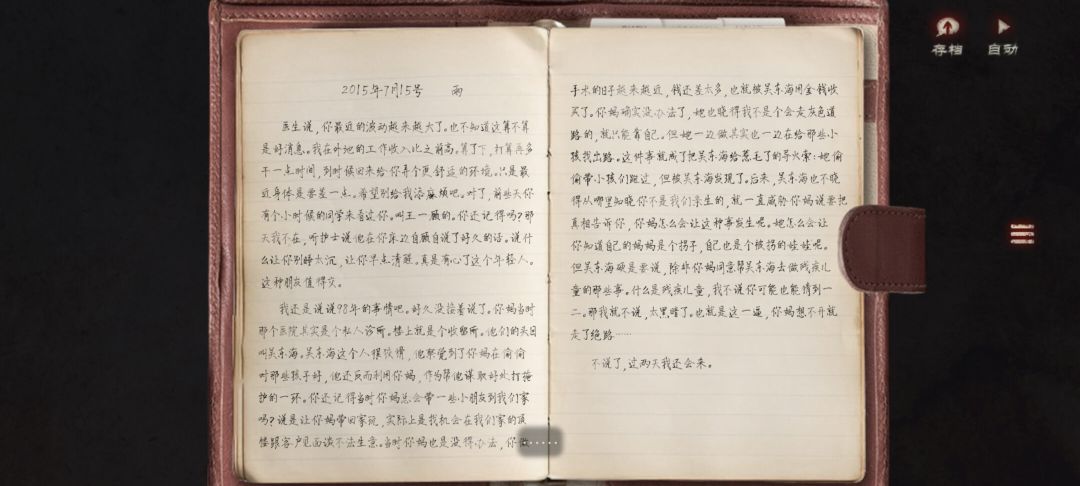 存档
自动
2015年7月15号 雨
医生说，你最近的波动越来越大了。也不知道这算不算
是好消息。我在外地的工作收入比之前高。算了下，打算再多
干一点时间，到时候回来给你弄个更舒适的环境。只是最
近身体是要差一点。希望别给我添麻烦吧。对了，前些天你
有个小时候的同学来看过你。叫王一顾的。你还记得吗？那
天我不在，听护士说他在你床边自顾自说了好久的话。说什
么让你别睡太沉，让你早点清醒。真是有心了这个年轻人。
这种朋友值得交。
我还是说说98年的事情吧。好久没接着说了。你妈当时
那个医院其实是个私人诊所。楼上就是个收留所。他们的头目
叫吴东海。吴东海这个人很狡猾，他察觉到了你妈在偷偷
对那些孩子好，他还反而利用你妈，作为帮他谋取好处打掩
护的一环。你还记得当时你妈总会带一些小朋友到我们家
吗？说是让你妈带回家玩，实际上是找机会在我们家的顶
楼跟客户见面谈不法生意。当时你妈也是没得办法，你做
手术的日子越来越近，钱还差太多，也就被吴东海用金钱收
买了。你妈确实没办法了，她也晓得我不是个会走灰色道
路的，就只能靠自己。但她一边做其实也一边在给那些小
孩找出路。这件事就成了把吴东海给惹毛了的导火索：她偷
偷带小孩们跑过，但被吴东海发现了。后来，吴东海也不晓
得从哪里知晓你不是我们亲生的，就一直威胁你妈说要把
真相告诉你，你妈怎么会让这种事发生呢。她怎么会让
你知道自己的妈妈是个拐子，自己也是个被拐的娃娃呢。
但吴东海硬是要说，除非你妈同意帮吴东海去做残疾儿
童的那些事。什么是残疾儿童，我不说你可能也能猜到一
二。那我就不说，太黑暗了。也就是这一逼，你妈想不开就
走了绝路……
不说了，过两天我还会来。